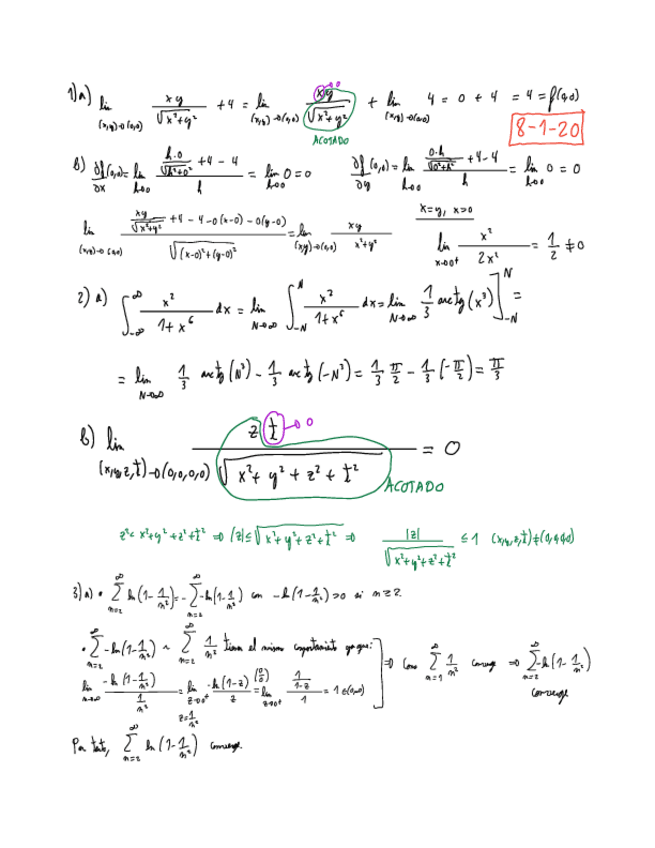 1)a) lim (x,y)→(0,0) xy/√(x²+y²) +4 = lim (x,y)→(0,0) xy/√(x²+y²) + lim (x,y)→(0,0) 4 = 0 + 4 = 4 = f(0,0)
→0
ACOTADO
8-1-20
b) ∂f/∂x (0,0) = lim h→0 (h·0/√(h²+0²) +4 - 4)/h = lim h→0 0 = 0   ∂f/∂y (0,0) = lim h→0 (0·h/√(0²+h²) +4-4)/h = lim h→0 0 = 0
lim (x,y)→(0,0) (xy/√(x²+y²) +4 - 4 - 0(x-0) - 0(y-0))/√((x-0)²+(y-0)²) = lim (x,y)→(0,0) xy/(x²+y²)   x=y, x>0   lim x→0⁺ x²/2x² = 1/2 ≠0
2) a) ∫_{-∞}^{∞} x²/(1+x⁶) dx = lim N→∞ ∫_{-N}^{N} x²/(1+x⁶) dx = lim N→∞ 1/3 arctg(x³)]_{-N}^{N} =
= lim N→∞ 1/3 arctg(N³) - 1/3 arctg(-N³) = 1/3 π/2 - 1/3 (-π/2) = π/3
b) lim (x,y,z,t)→(0,0,0,0) z t/√(x²+y²+z²+t²) = 0
→0
ACOTADO
z² ≤ x²+y²+z²+t² ⇒ |z| ≤ √(x²+y²+z²+t²) ⇒ |z|/√(x²+y²+z²+t²) ≤ 1 (x,y,z,t)≠(0,0,0,0)
3) a) • ∑_{n=2}^{∞} ln(1-1/n²) = -∑_{n=2}^{∞} -ln(1-1/n²) con -ln(1-1/n²) >0 si n≥2.
• ∑_{n=2}^{∞} -ln(1-1/n²) ~ ∑_{n=2}^{∞} 1/n² tienen el mismo comportamiento ya que:
lim n→∞ -ln(1-1/n²)/(1/n²) = lim z→0⁺ -ln(1-z)/z (0/0) = lim z→0⁺ (1/(1-z))/1 = 1 ∈(0,∞)
z=1/n²
⇒ Como ∑_{n=1}^{∞} 1/n² converge ⇒ ∑_{n=2}^{∞} -ln(1-1/n²) converge
Por tanto, ∑_{n=2}^{∞} ln(1-1/n²) converge.